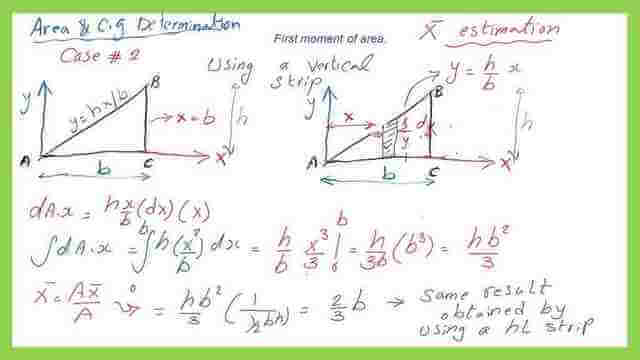 Area & C.G Determination
First moment of area.
X̄ estimation
Case # 2
Using a vertical strip
y = h/b x
y
B
y = hx/b
→ x = b
h
A
C
x
b
y
x
B
y
h
A
C
x
b
dA.x = h x/b (dx) (x)
∫dA.x = ∫₀ᵇ h (x²/b) dx = h/b x³/3 |₀ᵇ = h/3b (b³) = hb²/3
X̄ = Ax̄/A = hb²/3 (1/½bh) = 2/3 b → Same result
obtained by
using a hL strip